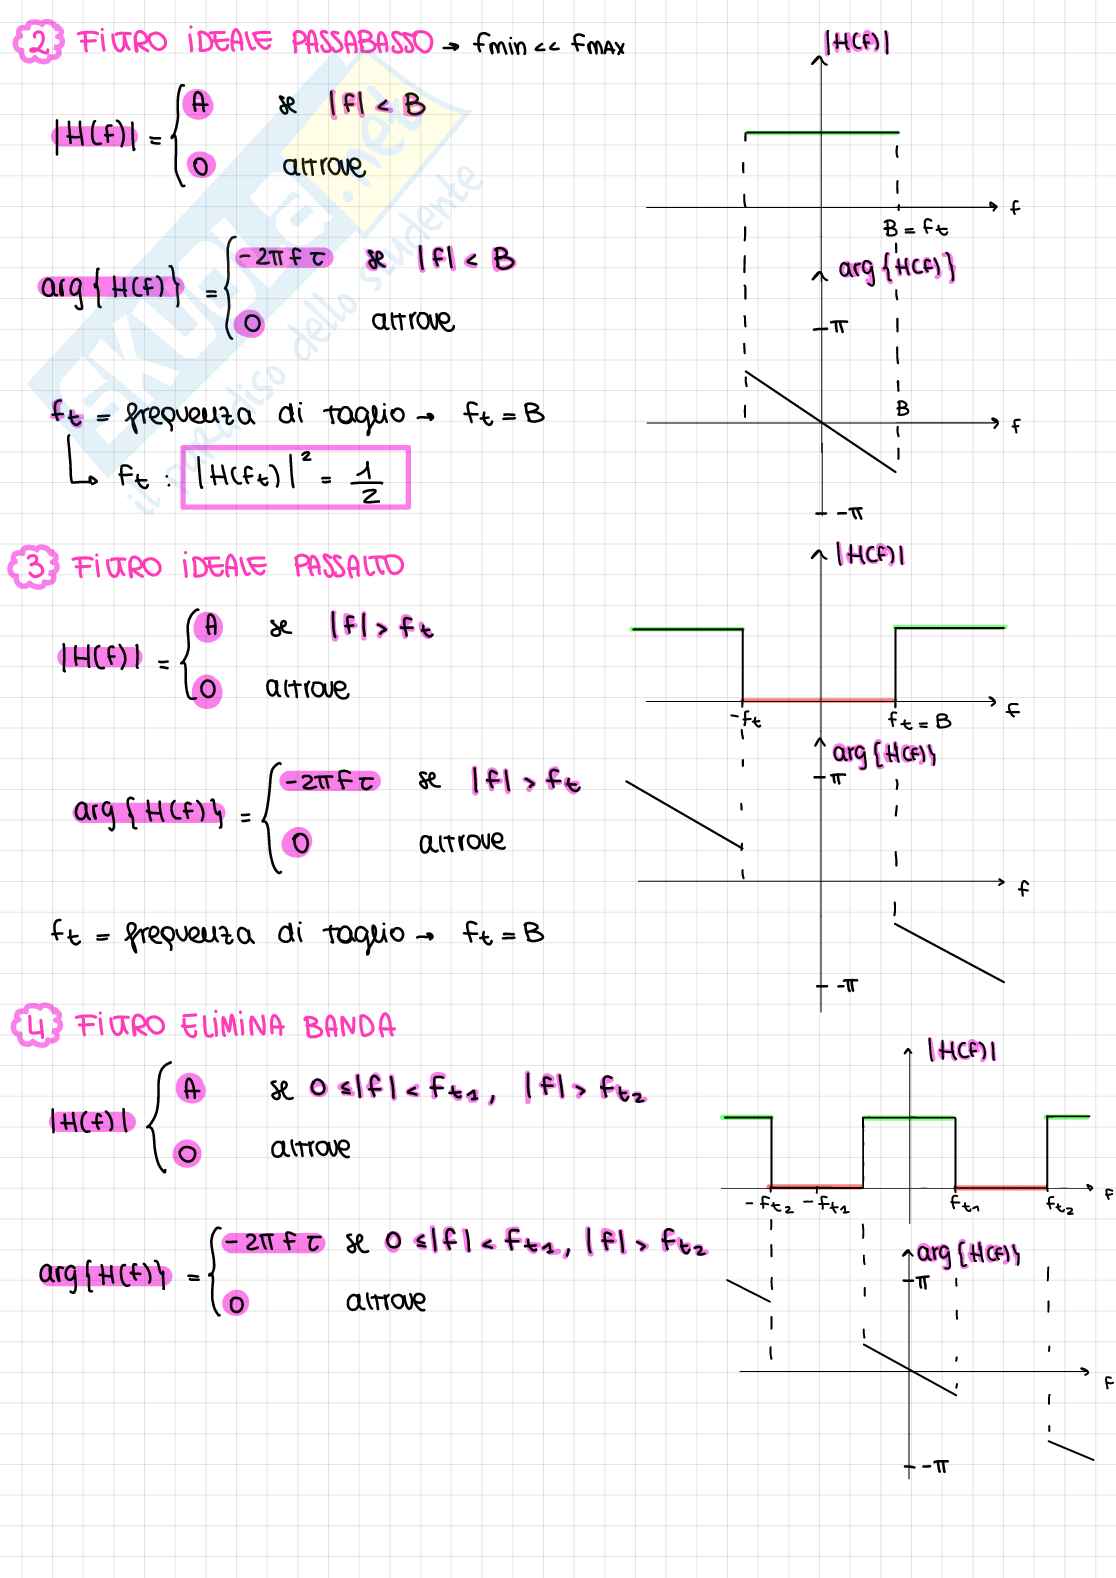 2 FILTRO IDEALE PASSABASSO → fmin << fmax
|H(f)| = { A se |f| < B
0 altrove
arg{H(f)} = { -2πfτ se |f| < B
0 altrove
ft = frequenza di taglio → ft = B
ft : |H(ft)|² = 1/2
|H(f)|
f
B = ft
arg{H(f)}
π
B
f
-π
SKUOLA.net
il paradiso dello studente
3 FILTRO IDEALE PASSALTO
|H(f)| = { A se |f| > ft
0 altrove
arg{H(f)} = { -2πfτ se |f| > ft
0 altrove
ft = frequenza di taglio → ft = B
|H(f)|
-ft
ft = B
f
arg{H(f)}
π
f
-π
4 FILTRO ELIMINA BANDA
|H(f)| { A se 0 ≤ |f| < ft1, |f| > ft2
0 altrove
arg{H(f)} = { -2πfτ se 0 ≤ |f| < ft1, |f| > ft2
0 altrove
|H(f)|
-ft2 -ft1 ft1 ft2 f
arg{H(f)}
π
f
-π